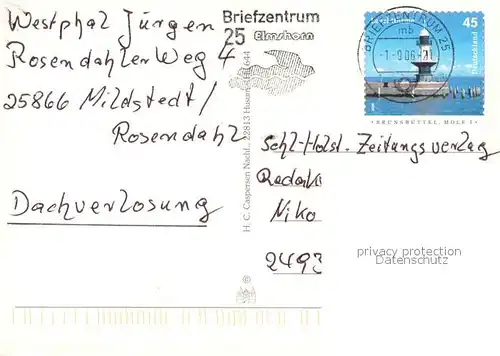 Westphal Jürgen
Rosendahler Weg 4
25866 Mildstedt/
Rosendahl
Dachverlosung
Briefzentrum
25 Elmshorn
H. C. Caspersen Nachf., 22813 Husum
©
BRIEFZENTRUM 25
mb
45
Deutschland
BRUNSBÜTTEL, MOLE 1
Schl-Holst. Zeitungsverlag
Redak
Niko
2493
privacy protection
Datenschutz